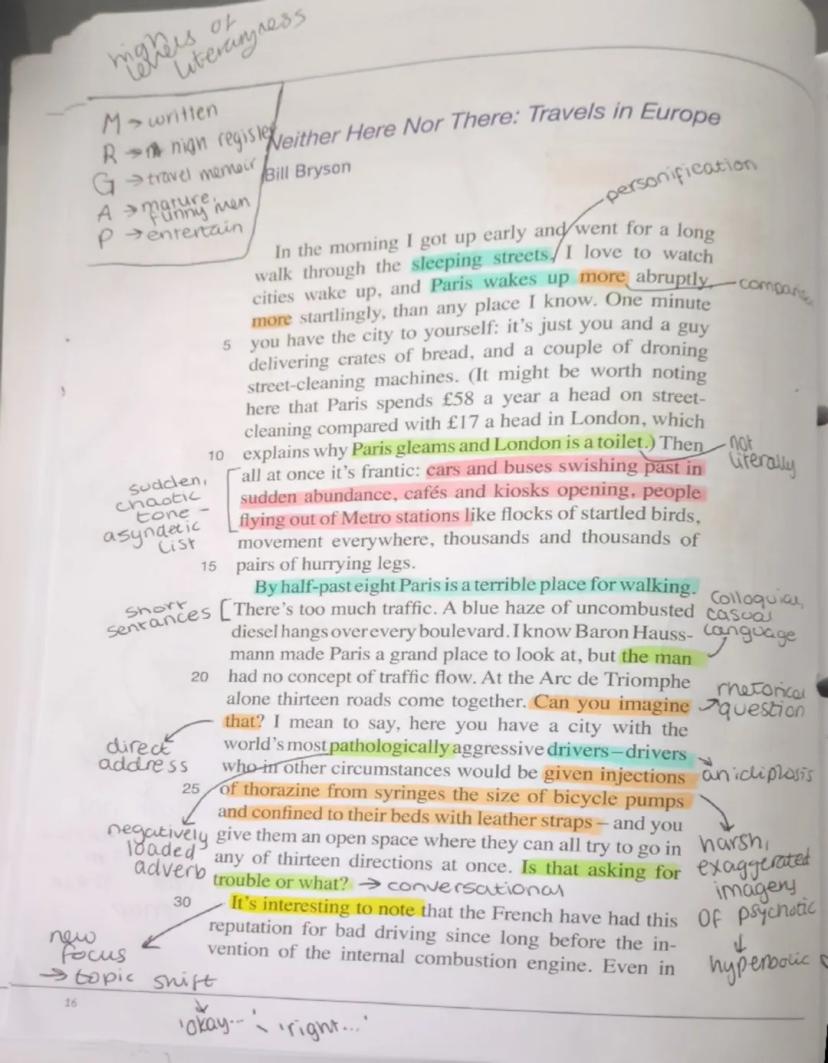 higher
levels of
literaryness
M → written
R → high register
G → travel memoir
A → mature,
funny men
P → entertain
Neither Here Nor There: Travels in Europe
Bill Bryson
personification
In the morning I got up early and went for a long
walk through the sleeping streets. I love to watch
cities wake up, and Paris wakes up more abruptly,
comparise
more startlingly, than any place I know. One minute
5 you have the city to yourself: it's just you and a guy
delivering crates of bread, and a couple of droning
street-cleaning machines. (It might be worth noting
here that Paris spends £58 a year a head on street-
cleaning compared with £17 a head in London, which
10 explains why Paris gleams and London is a toilet.) Then
not
literally
all at once it's frantic: cars and buses swishing past in
sudden abundance, cafés and kiosks opening, people
flying out of Metro stations like flocks of startled birds,
movement everywhere, thousands and thousands of
15 pairs of hurrying legs.
sudden,
chaotic
tone –
asyndetic
list
By half-past eight Paris is a terrible place for walking.
There's too much traffic. A blue haze of uncombusted
diesel hangs over every boulevard. I know Baron Hauss-
mann made Paris a grand place to look at, but the man
20 had no concept of traffic flow. At the Arc de Triomphe
alone thirteen roads come together. Can you imagine
that? I mean to say, here you have a city with the
world's most pathologically aggressive drivers – drivers
who in other circumstances would be given injections
25 of thorazine from syringes the size of bicycle pumps
and confined to their beds with leather straps – and you
give them an open space where they can all try to go in
any of thirteen directions at once. Is that asking for
trouble or what? → conversational
short
sentances
colloquial,
casual
language
rhetorical
question
direct
address
anidiplosis
negatively
loaded
adverb
harsh,
exaggerated
imagery
of psychotic
↓
hyperbolic
30 It's interesting to note that the French have had this
reputation for bad driving since long before the in-
vention of the internal combustion engine. Even in
new
focus
→ topic shift
16
'okay...' 'right...'